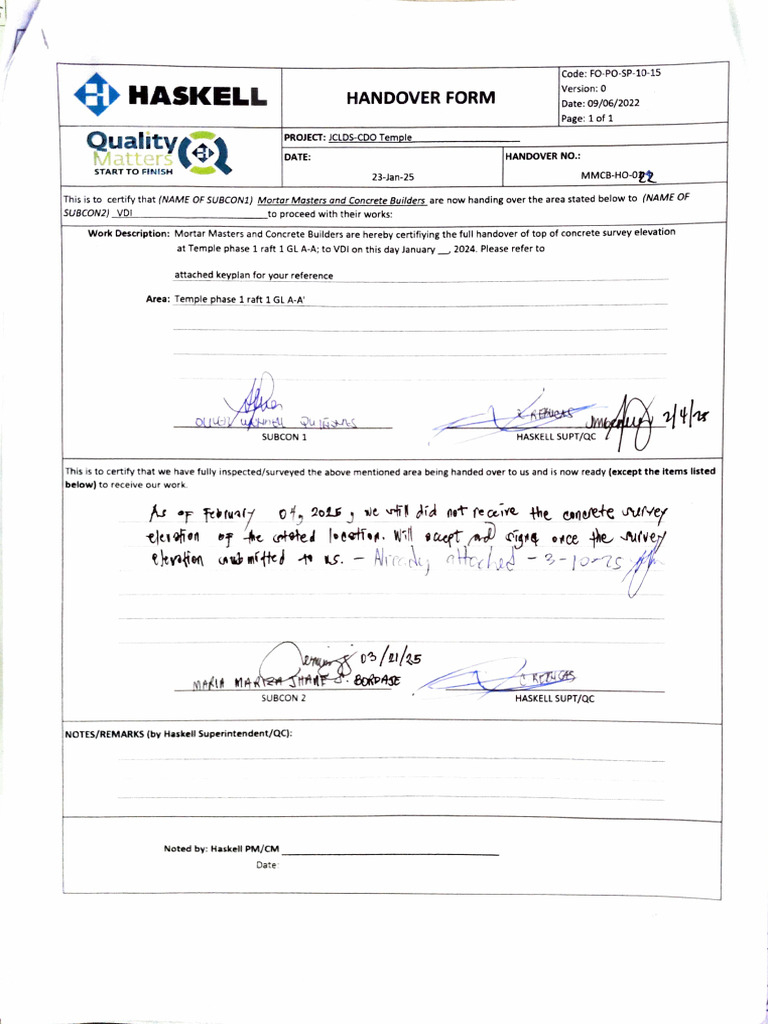 HASKELL
HANDOVER FORM
Code: FO-PO-SP-10-15
Version: 0
Date: 09/06/2022
Page: 1 of 1
Quality
Matters
START TO FINISH
PROJECT: JCLDS-CDO Temple
DATE:
23-Jan-25
HANDOVER NO.:
MMCB-HO-022
This is to certify that (NAME OF SUBCON1) Mortar Masters and Concrete Builders are now handing over the area stated below to (NAME OF
SUBCON2) VDI to proceed with their works:
Work Description: Mortar Masters and Concrete Builders are hereby certifiying the full handover of top of concrete survey elevation
at Temple phase 1 raft 1 GL A-A; to VDI on this day January __, 2024. Please refer to
attached keyplan for your reference
Area: Temple phase 1 raft 1 GL A-A'
2/4/25
SUBCON 1
HASKELL SUPT/QC
This is to certify that we have fully inspected/surveyed the above mentioned area being handed over to us and is now ready (except the items listed
below) to receive our work.
As of February 04, 2025, we still did not receive the concrete survey
elevation of the location. Will accept and once the survey
elevation submitted to us. - Already attached - 3-10-25
03/21/25
MARIA MARIZA JHANE S. BORDAJE
SUBCON 2
HASKELL SUPT/QC
NOTES/REMARKS (by Haskell Superintendent/QC):
Noted by: Haskell PM/CM
Date: